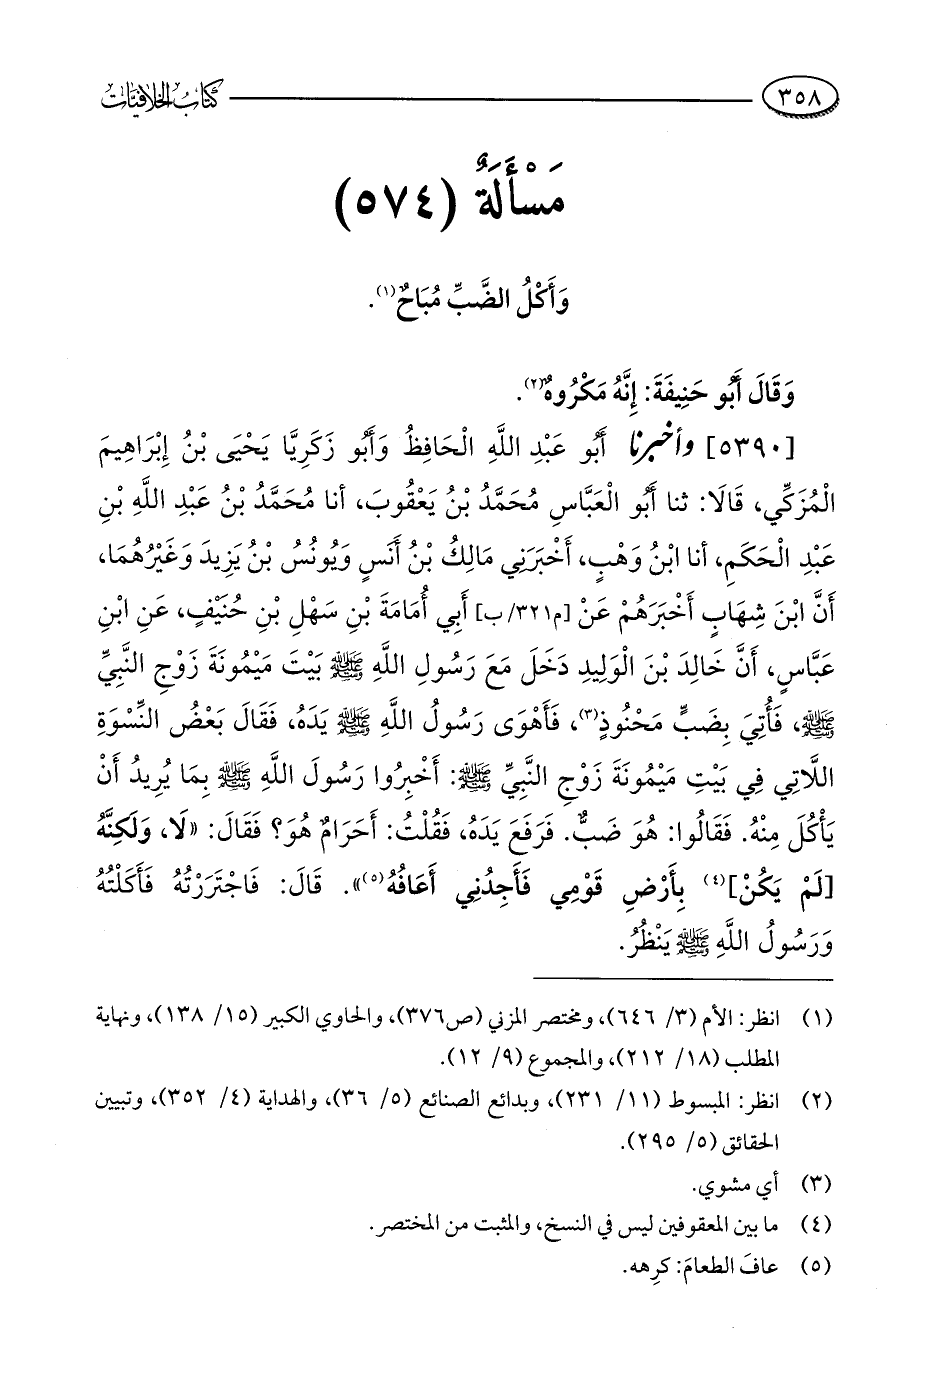 ٣٥٨ كتاب الخلافيات
مَسْأَلَةٌ (٥٧٤)
وَأَكْلُ الضَّبِّ مُبَاحٌ(١).
وَقَالَ أَبُو حَنِيفَةَ: إِنَّهُ مَكْرُوهٌ(٢).
[٥٣٩٠] وأخبرنا أَبُو عَبْدِ اللَّهِ الْحَافِظُ وَأَبُو زَكَرِيَّا يَحْيَى بْنُ إِبْرَاهِيمَ
الْمُزَكِّي، قَالَا: ثنا أَبُو الْعَبَّاسِ مُحَمَّدُ بْنُ يَعْقُوبَ، أنا مُحَمَّدُ بْنُ عَبْدِ اللَّهِ بْنِ
عَبْدِ الْحَكَمِ، أنا ابْنُ وَهْبٍ، أَخْبَرَنِي مَالِكُ بْنُ أَنَسٍ وَيُونُسُ بْنُ يَزِيدَ وَغَيْرُهُمَا،
أَنَّ ابْنَ شِهَابٍ أَخْبَرَهُمْ عَنْ [م٣٢١/ ب] أَبِي أُمَامَةَ بْنِ سَهْلِ بْنِ حُنَيْفٍ، عَنِ ابْنِ
عَبَّاسٍ، أَنَّ خَالِدَ بْنَ الْوَلِيدِ دَخَلَ مَعَ رَسُولِ اللَّهِ ﷺ بَيْتَ مَيْمُونَةَ زَوْجِ النَّبِيِّ
ﷺ، فَأُتِيَ بِضَبٍّ مَحْنُوذٍ(٣)، فَأَهْوَى رَسُولُ اللَّهِ ﷺ يَدَهُ، فَقَالَ بَعْضُ النِّسْوَةِ
اللَّاتِي فِي بَيْتِ مَيْمُونَةَ زَوْجِ النَّبِيِّ ﷺ: أَخْبِرُوا رَسُولَ اللَّهِ ﷺ بِمَا يُرِيدُ أَنْ
يَأْكُلَ مِنْهُ. فَقَالُوا: هُوَ ضَبٌّ. فَرَفَعَ يَدَهُ، فَقُلْتُ: أَحَرَامٌ هُوَ؟ فَقَالَ: «لَا، وَلَكِنَّهُ
[لَمْ يَكُنْ](٤) بِأَرْضِ قَوْمِي فَأَجِدُنِي أَعَافُهُ(٥)». قَالَ: فَاجْتَرَرْتُهُ فَأَكَلْتُهُ
وَرَسُولُ اللَّهِ ﷺ يَنْظُرُ.
(١) انظر: الأم (٣/ ٦٤٦)، ومختصر المزني (ص٣٧٦)، والحاوي الكبير (١٥/ ١٣٨)، ونهاية
المطلب (١٨/ ٢١٢)، والمجموع (٩/ ١٢).
(٢) انظر: المبسوط (١١/ ٢٣١)، وبدائع الصنائع (٥/ ٣٦)، والهداية (٤/ ٣٥٢)، وتبيين
الحقائق (٥/ ٢٩٥).
(٣) أي مشوي.
(٤) ما بين المعقوفين ليس في النسخ، والمثبت من المختصر.
(٥) عافَ الطعامَ: كرِهه.